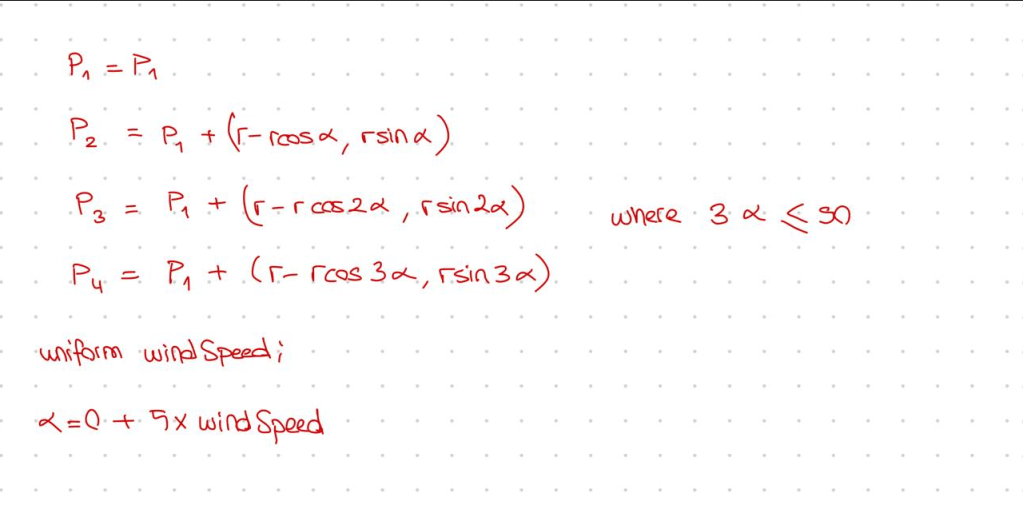 P₁ = P₁
P₂ = P₁ + (r - r cos α, r sin α)
P₃ = P₁ + (r - r cos 2α, r sin 2α) where 3α ≤ 90
P₄ = P₁ + (r - r cos 3α, r sin 3α)
uniform windSpeed;
α = 0 + 5 x windSpeed